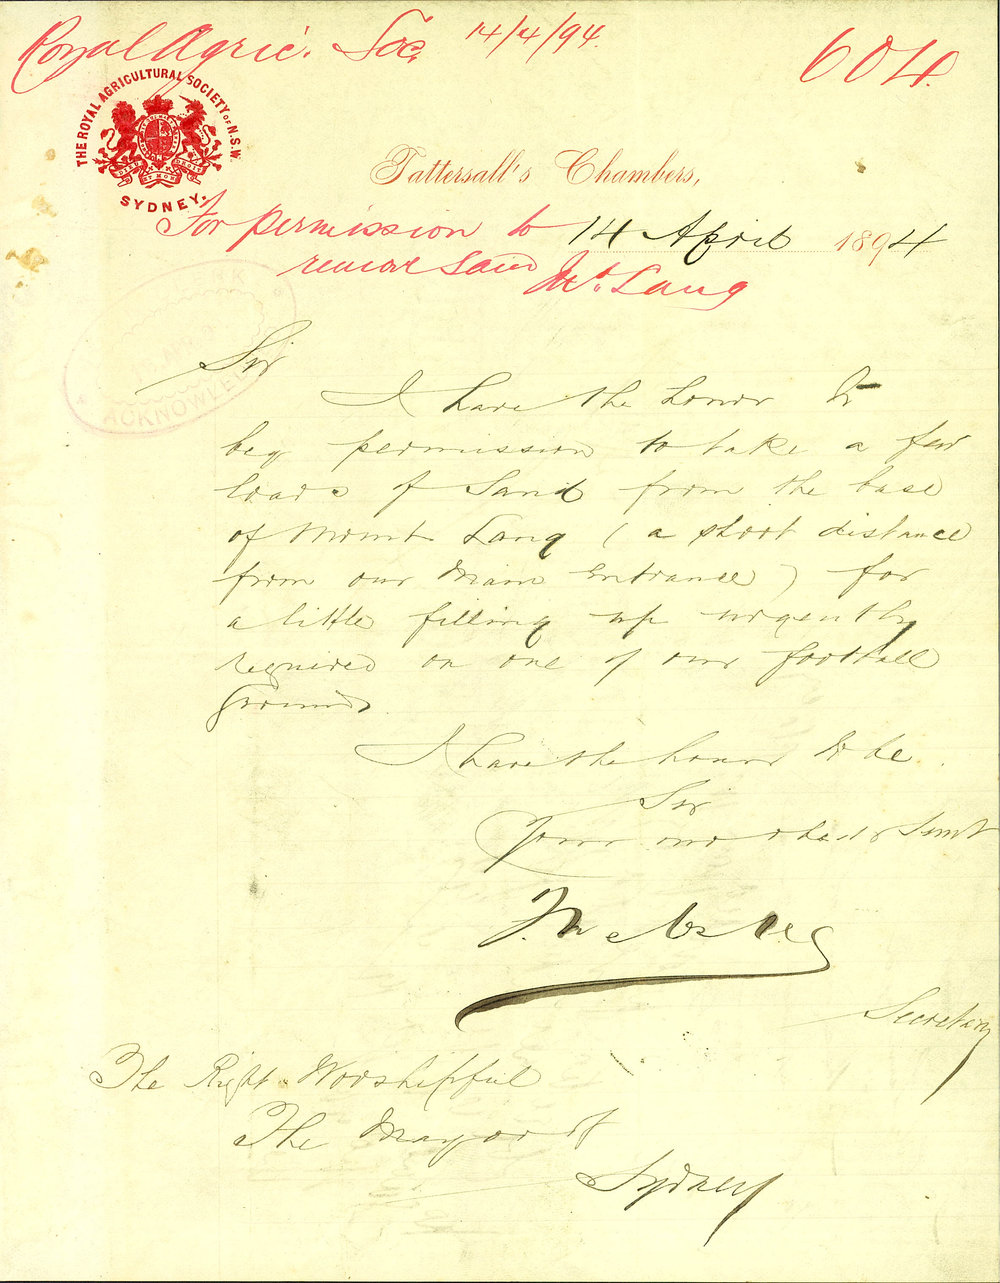 Royal Agric. Soc. 14/4/94. 604.
THE ROYAL AGRICULTURAL SOCIETY OF N.S.W.
SYDNEY.
DIEU ET MON DROIT
Tattersall's Chambers,
For permission to 14 April 1894
remove sand Mt. Lang
ACKNOWLED
Sir
I have the honor to
beg permission to take a few
loads of Sand from the base
of Mount Lang (a short distance
from our Main Entrance) for
a little filling up urgently
required on one of our football
grounds
I have the honor to be
Sir
Your most obedt Servt
Secretary
The Right Worshipful
The Mayor of
Sydney